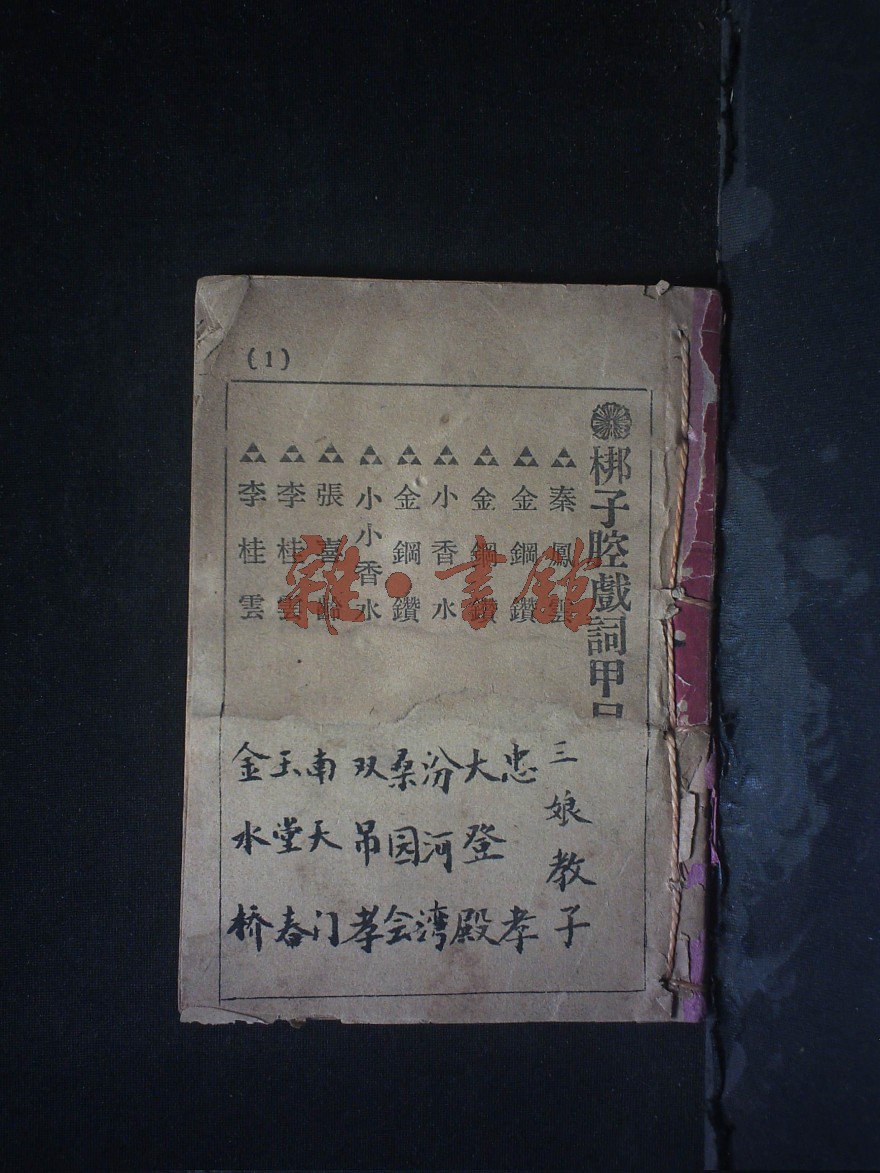 (1)
梆子腔戲詞甲
秦鳳雲 三娘教子
金鋼鑽 忠孝
金鋼鑽 大登殿
小香水 汾河湾
金鋼鑽 桑园会
小小香水 双吊孝
張喜齡 南天门
李桂雲 玉堂春
李桂雲 金水桥
雜·書館